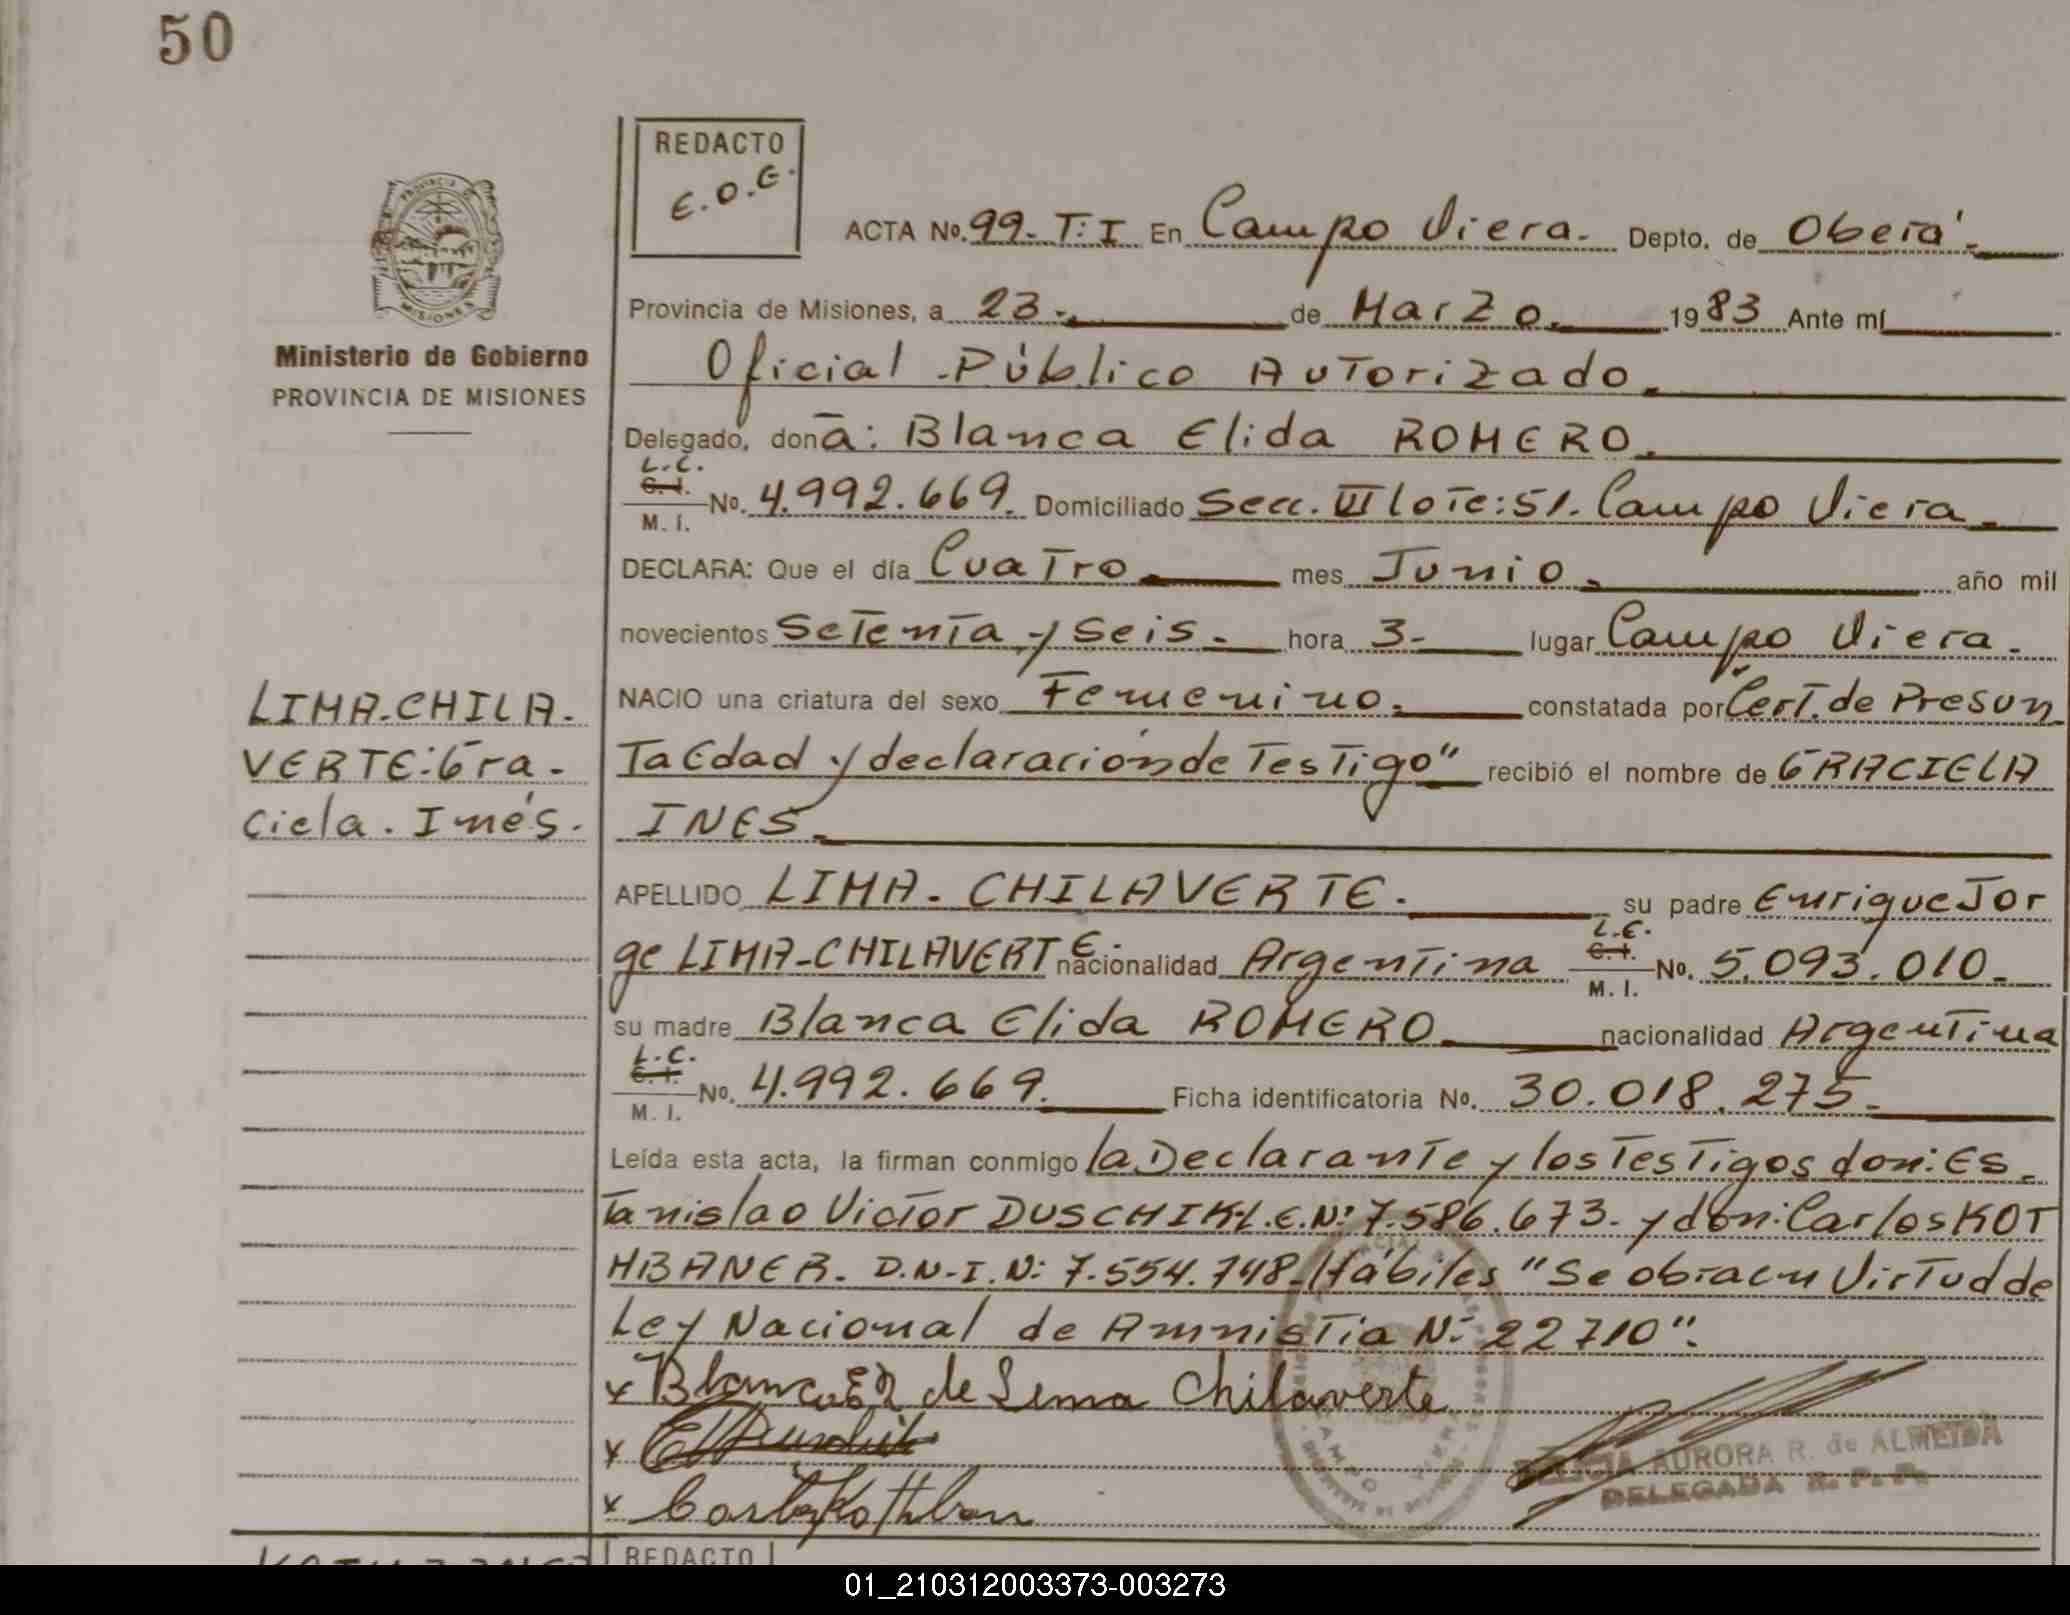 50
REDACTO
E.O.G.
PROVINCIA DE
MISIONES
Ministerio de Gobierno
PROVINCIA DE MISIONES
ACTA No. 99. T: I En Campo Viera. Depto. de Oberá.
Provincia de Misiones, a 23. de Marzo. 1983 Ante mí
Oficial Público Autorizado.
Delegado, don a: Blanca Elida ROMERO.
L.C.
C. I.
M. I.
No. 4.992.669. Domiciliado Secc. VI lote: 51. Campo Viera.
DECLARA: Que el día Cuatro mes Junio. año mil
novecientos Setenta y Seis. hora 3- lugar Campo Viera.
NACIO una criatura del sexo Femenino. constatada por "Cert. de Presun
ta Edad y declaración de Testigo" recibió el nombre de GRACIELA
INES.
LIMA-CHILA-
VERTE: Gra-
ciela. Inés.
APELLIDO LIMA-CHILAVERTE. su padre Enrique Jor
ge LIMA-CHILAVERTE. nacionalidad Argentina
L.E.
C. I.
M. I.
No. 5.093.010.
su madre Blanca Elida ROMERO nacionalidad Argentina
L.C.
C. I.
M. I.
No. 4.992.669. Ficha identificatoria No. 30.018.275.
Leída esta acta, la firman conmigo la Declarante y los Testigos don: Es-
tanislao Victor DUSCHIK L.E. Nº 7.586.673. y don: Carlos KOT
HBANER. D.N.I. N: 7.554.748. Hábiles "Se obra en Virtud de
Ley Nacional de Amnistia Nº 22710".
x Blanca E R de Lima Chilaverte
x
x
AURORA R. de ALMEIDA
DELEGADA R. P. P.
REDACTO
01_210312003373-003273